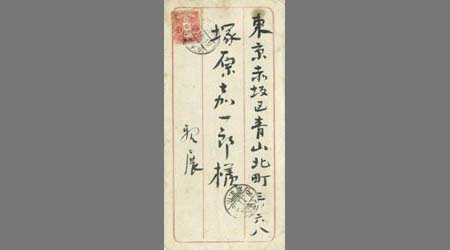 東京赤坂区青山北町三ノ六八
塚原嘉一郎様
親展